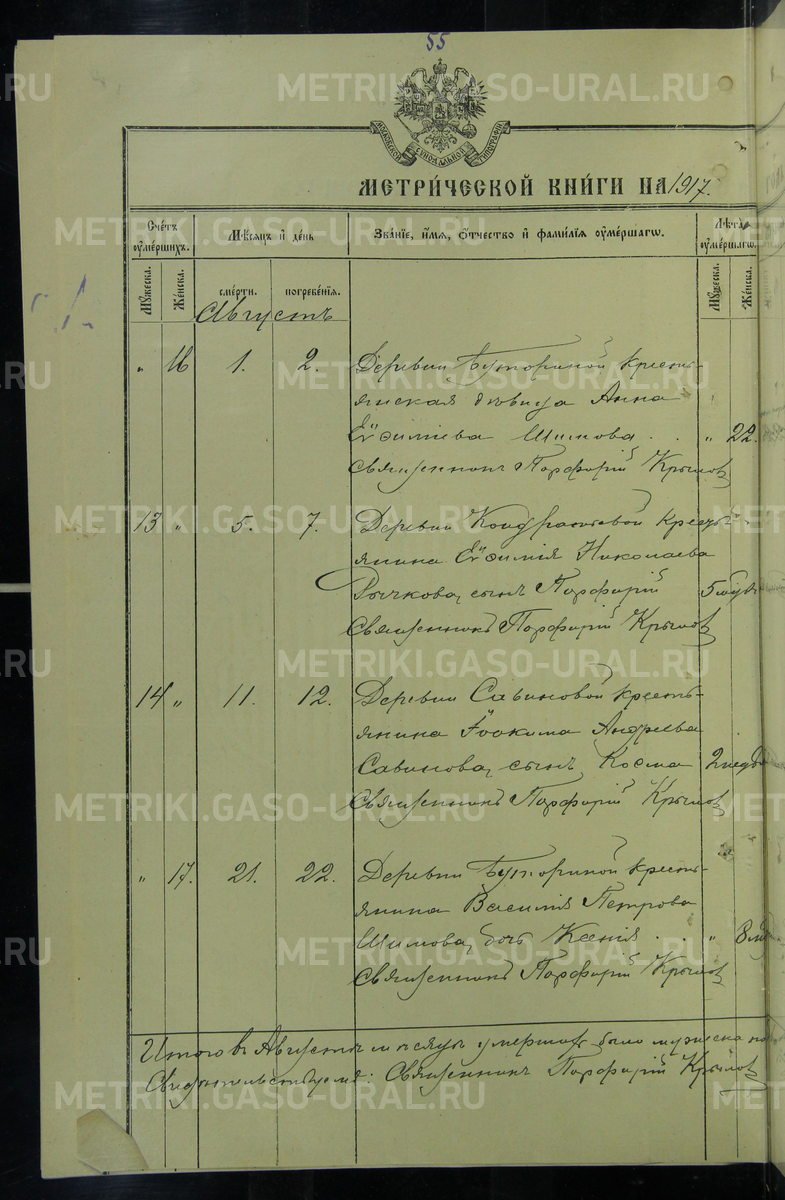 55
МОСКОВСКОЙ СѴНОДАЛЬНОЙ ТИПОГРАФІИ
МЕТРИ́ЧЕСКОЙ КНИ́ГИ НА 1917.
Счетъ ᲂумершихъ. Мѣсяцъ и день Званіе, имя, отчество и фамилія ᲂумершагѡ. Лѣта ᲂумершагѡ.
Мужеска. Женска. смерти. погребенія. Мужеска. Женска.
Августъ
" 16 1. 2. Деревни Буториной кресть-
янская девица Анна
Евѳиміева Шимова . . " 22.
Священникъ Порфирій Крылов
13 " 5. 7. Деревни Кондратьевой кресть-
янина Евѳимія Николаева
Рычкова, сынъ Порфирій 5
Священникъ Порфирій Крылов
14 " 11. 12. Деревни Савиновой кресть-
янина Іоакима Андреева
Савинова, сынъ Косма 2 недѣ
Священникъ Порфирій Крылов
" 17. 21. 22. Деревни Буториной кресть-
янина Василія Петрова
Шимова, дочь Ксенія . . " 8
Священникъ Порфирій Крылов
Итого въ Августѣ мѣсяцѣ умерших было мужеска по
Свидѣтельствуемъ: Священникъ Порфирій Крылов
METRIKI.GASO-URAL.RU